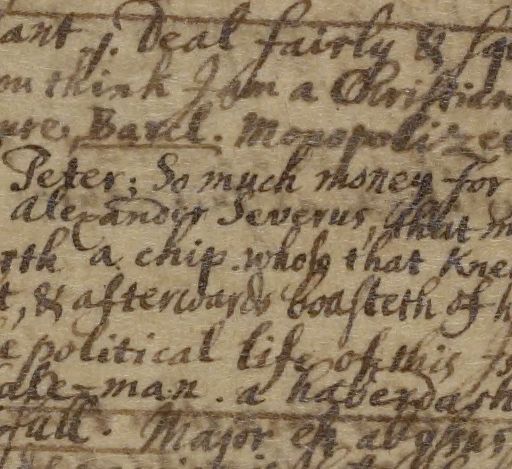 ant j. Deal fairly & squ
ou think I am a Christian
ure, Barcl. Monopolizer
Peter; So much money for
Alexander Severus, that m
rth a chip. whols that Kne
t, & afterwards boasteth of h
e political life of this Is
ake-man. a haberdash
full. Major est abyssus